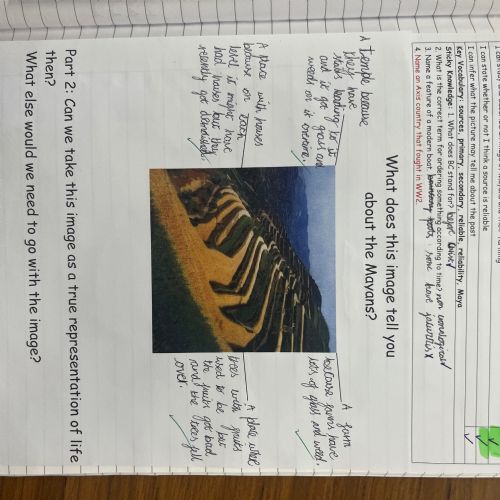 I can state whether or not I think a source is reliable
I can infer what the picture may tell me about the past
Key Vocabulary: sources, primary, secondary, reliable, reliability, Maya
Sticky Knowledge: 1. What does BC stand for? before christ
2. What is the correct term for ordering something according to time?
3. Name a feature of a modern boat. some have jacuzzis
4. Name an Axis country that fought in WW2.
What does this image tell you
about the Mayans?
A temple because
they have
stairs leading to it
and it got grass and
weeds on it overtime.
A farm
because farms have
lots of grass and weed.
A place with houses
because on each
level it might have
had houses but they
recently got demolished.
A place where
trees with fruits
used to be but
the fruits got bad
and the trees fell
over.
Part 2: Can we take this image as a true representation of life
then?
What else would we need to go with the image?